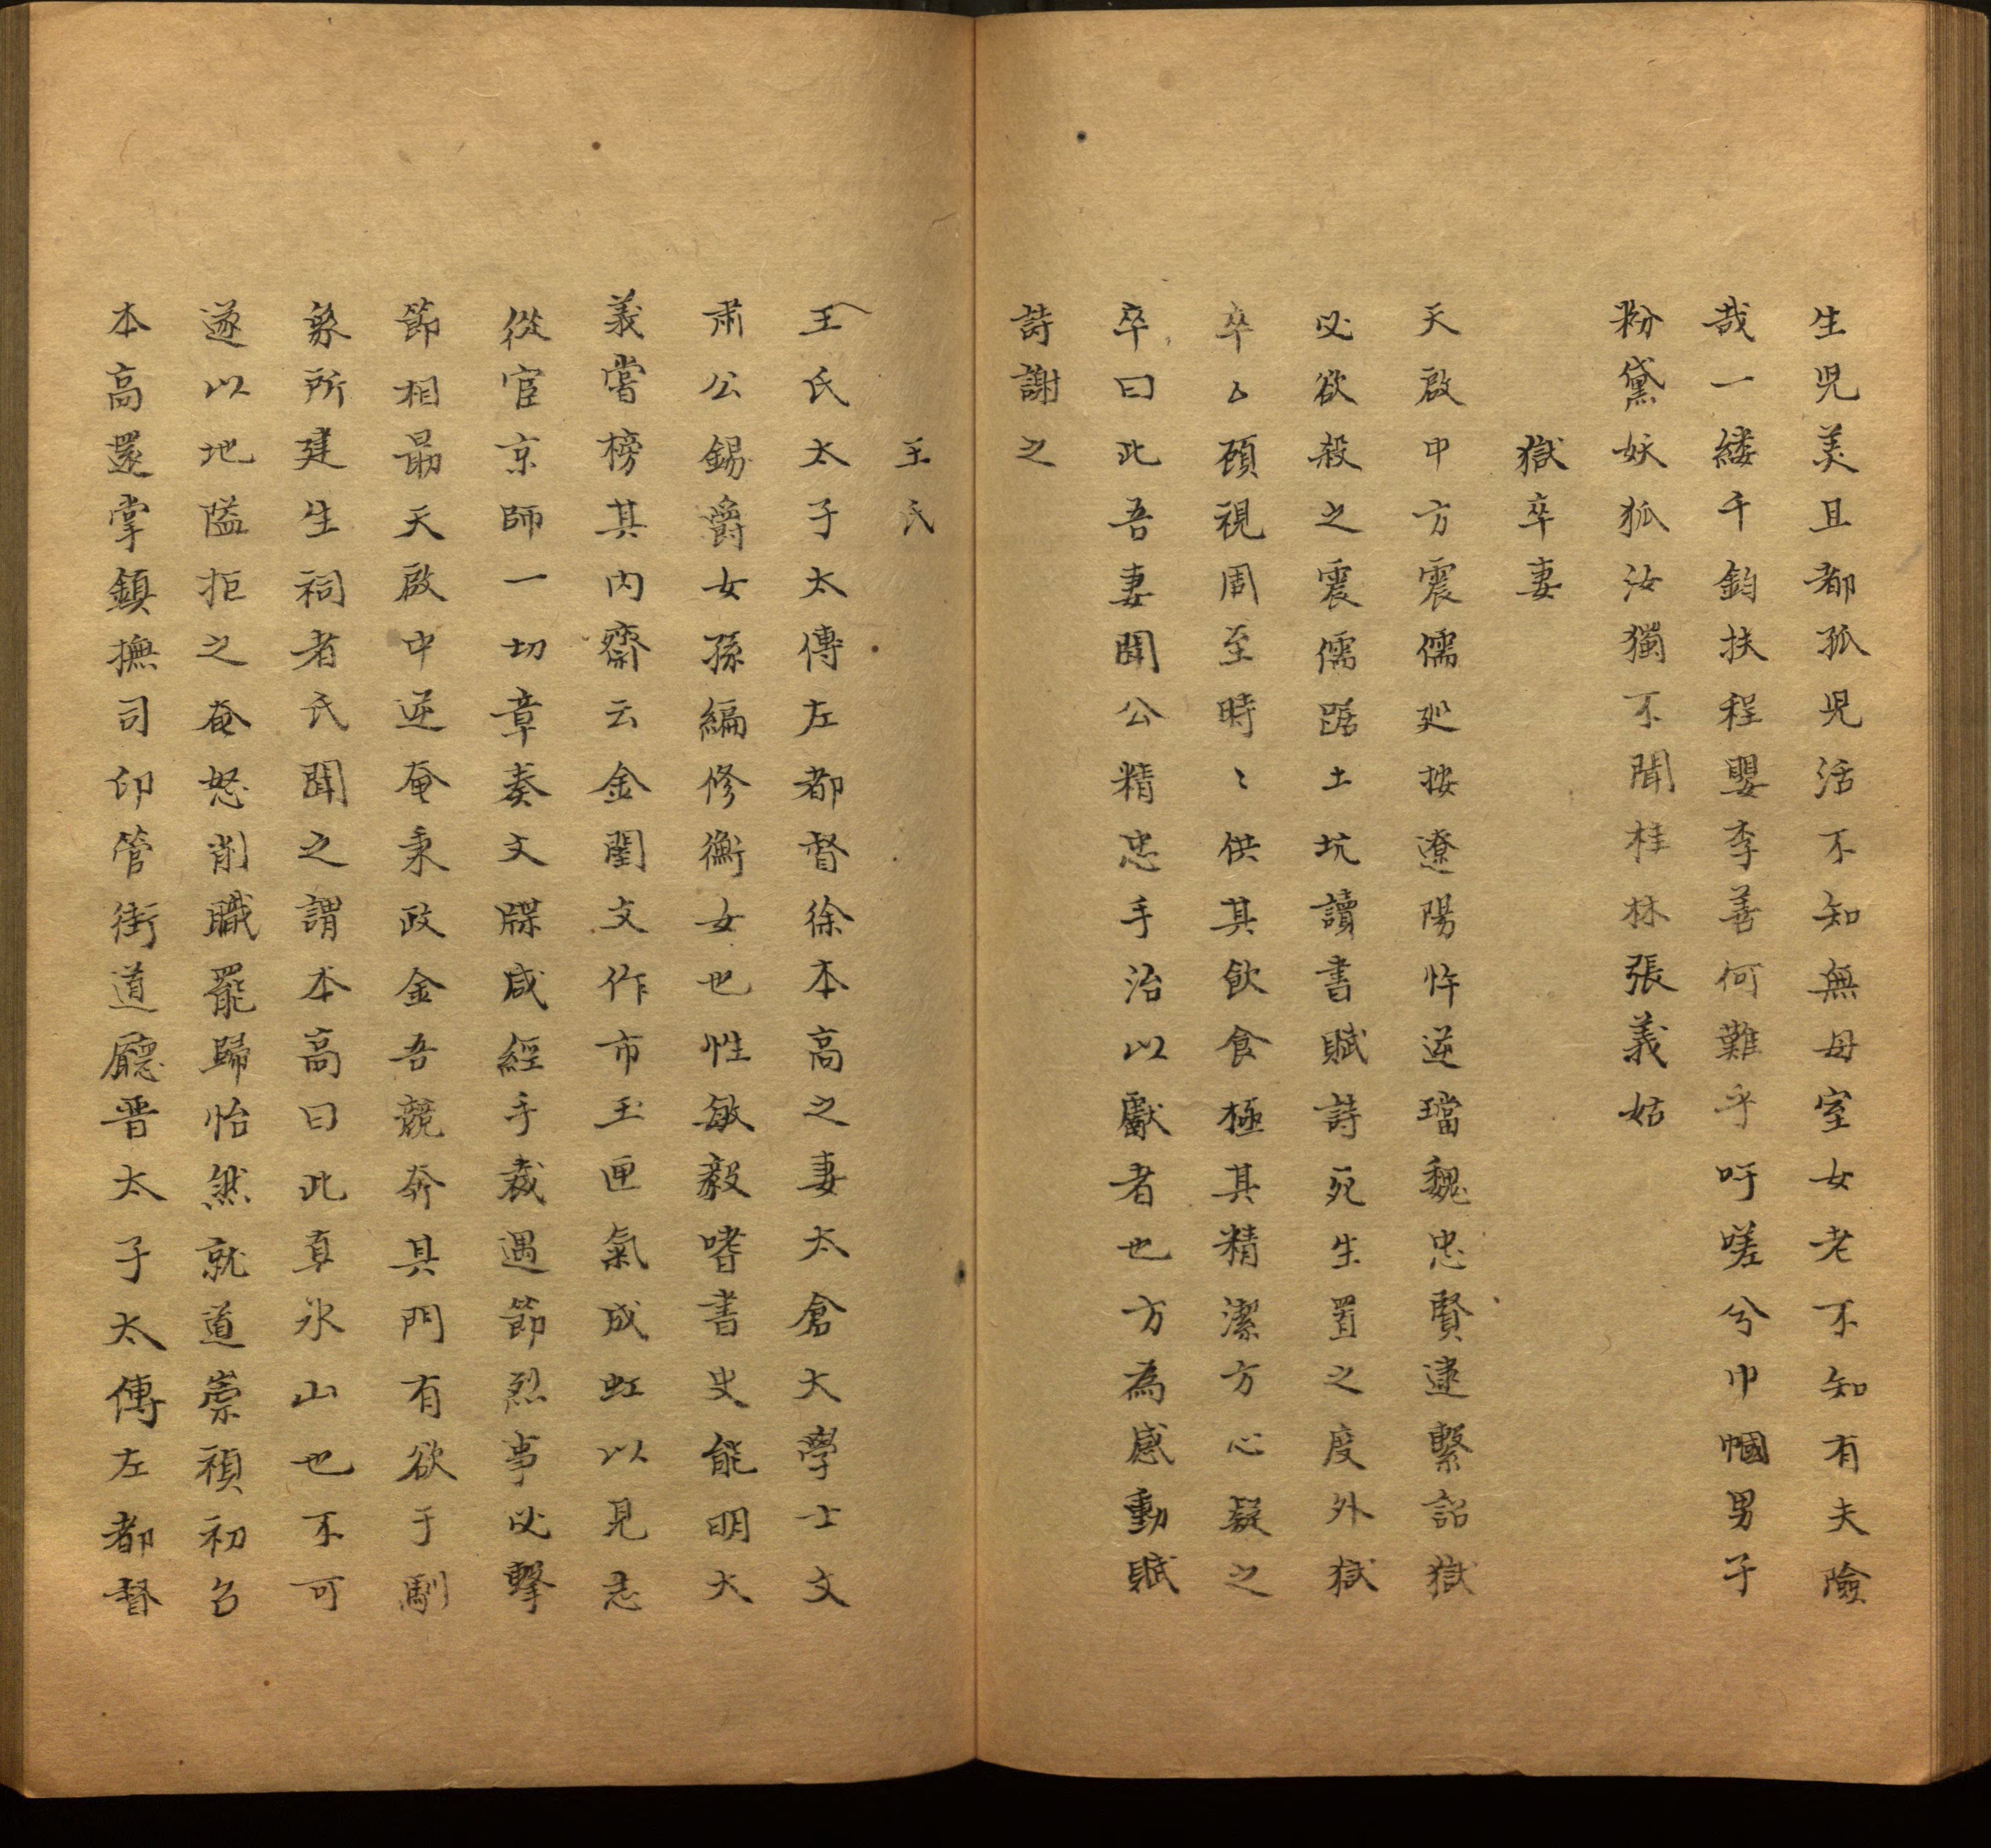 生児美且都孤児活不知無母室女老不知有夫險
哉一縷千鈞扶程嬰李善何難乎吁嗟兮巾幗男子
粉黛妖狐汝獨不聞桂林張義姑
獄卒妻
天啟中方震儒廵按遼陽忤逆璫魏忠賢逮繫詔獄
必欲殺之震儒踞土坑讀書賦詩死生置之度外獄
卒顧視周至時〻供其飲食極其精潔方心疑之
卒曰此吾妻聞公精忠手治以獻者也方為感動賦
詩謝之
王氏
王氏太子太傅左都督徐本高之妻太倉大學士文
肅公錫爵女孫編修衡女也性敏毅嗜書史能明大
義嘗榜其内齋云金閨文作市玉匣氣成虹以見志
從宦京師一切章奏文牒咸經手裁遇節烈事必擊
節相勗天啟中逆奄秉政金吾競奔其門有欲于
象所建生祠者氏聞之謂本高曰此真氷山也不可
遂以地隘拒之奄怒削職罷歸怡然就道崇禎初召
本高還掌鎮撫司印管街道廳晋太子太傅左都督